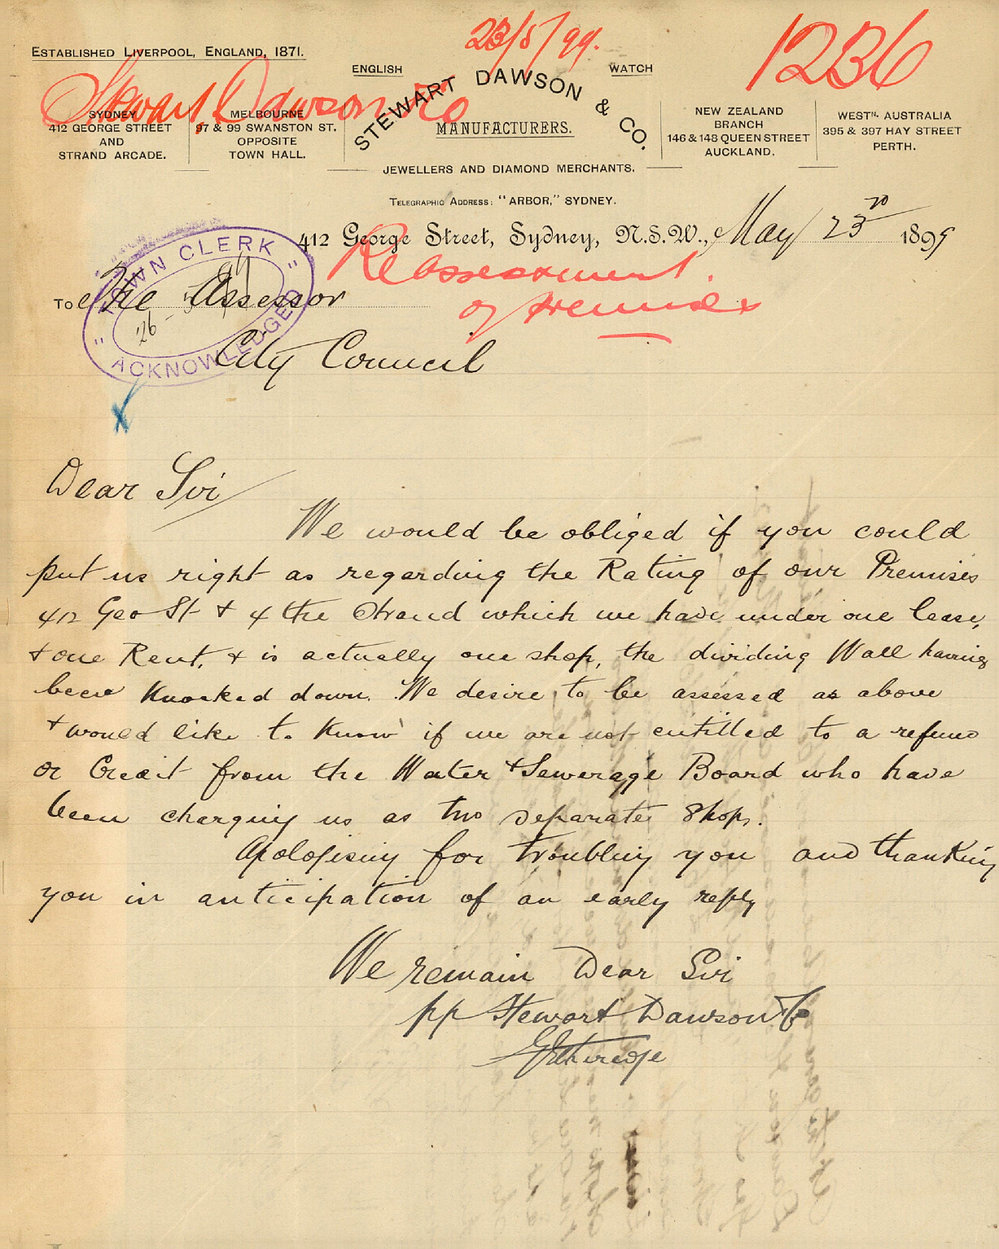 23/5/99. 1236
ESTABLISHED LIVERPOOL, ENGLAND, 1871.
Stewart Dawson & Co
ENGLISH WATCH
STEWART DAWSON & CO.
MANUFACTURERS.
JEWELLERS AND DIAMOND MERCHANTS.
SYDNEY
412 GEORGE STREET
AND
STRAND ARCADE.
MELBOURNE
97 & 99 SWANSTON ST.
OPPOSITE
TOWN HALL.
NEW ZEALAND
BRANCH
146 & 148 QUEEN STREET
AUCKLAND.
WESTN. AUSTRALIA
395 & 397 HAY STREET
PERTH.
TELEGRAPHIC ADDRESS: "ARBOR," SYDNEY.
412 George Street, Sydney, N.S.W., May 23rd 1899
Reassessment
of premises
TOWN CLERK
26-5-99
ACKNOWLEDGED
To The Assessor
City Council
Dear Sir
We would be obliged if you could
put us right as regarding the Rating of our Premises
412 Geo St & 4 the Strand which we have under one lease,
& one Rent, & is actually one shop, the dividing Wall having
been Knocked down. We desire to be assessed as above
& would like to Know if we are not entitled to a refund
or Credit from the Water & Sewerage Board who have
been charging us as two separate Shops.
Apologising for troubling you and thanking
you in anticipation of an early reply
We remain Dear Sir
pp Stewart Dawson & Co
Etheredge